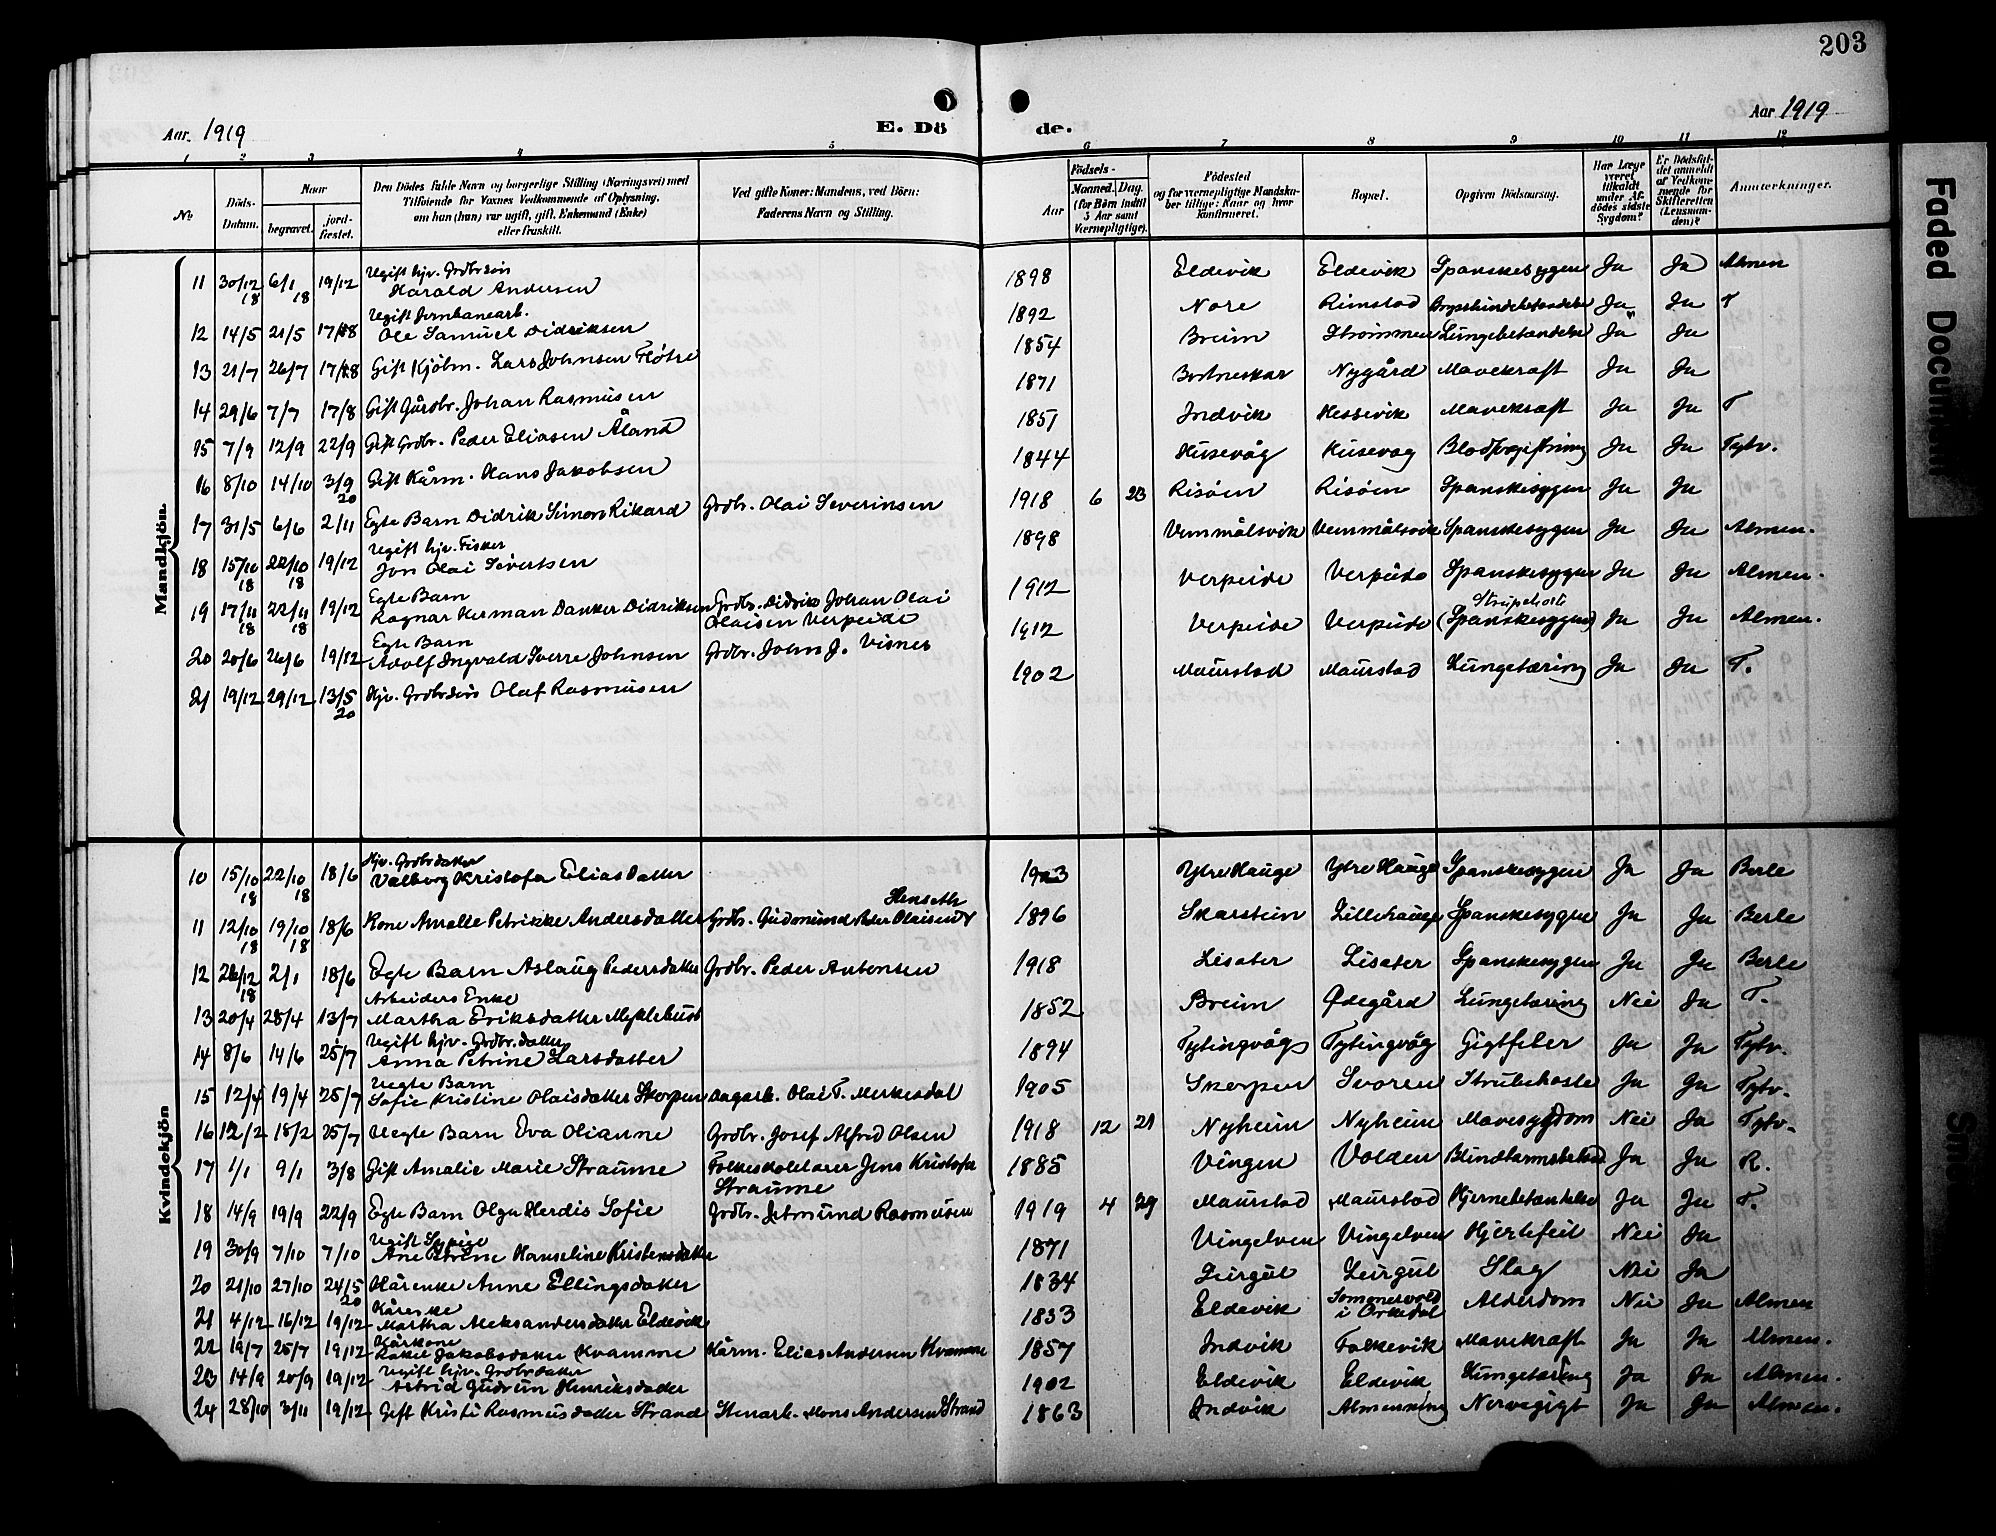 203
Aar 1919
E. Dö
de.
Aar 1919
1 2 3 4 5 6 7 8 9 10 11 12
№
Döds-Datum.
Naar
begravet.
jord-fæstet.
Den Dödes fulde Navn og borgerlige Stilling (Næringsvei) med
Tilföiende for Voxnes Vedkommende af Oplysning,
om han (hun) var ugift, gift, Enkemand (Enke)
eller fraskilt.
Ved gifte Koner: Mandens, ved Börn:
Faderens Navn og Stilling.
Födsels-
Aar
Maaned. Dag.
(for Börn indtil
5 Aar samt
Værnepligtige).
Födested
og for værnepligtige Mandska-
ber tillige: Naar og hvor
konfirmeret.
Bopæl.
Opgiven Dödsaarsag.
Har Læge
været
tilkaldt
under Af-
dödes sidste
Sygdom?
Er Dödsfal-
det anmeldt
af Vedkom-
mende for
Skifteretten
(Lensman-
den)?
Anmærkninger.
Mandkjön.
11 30/12 18 6/1 18 19/12 Ugift hjv. Grdbr.sön Harald Andersen 1898 Eldevik Eldevik Spanskesygen Ja Ja Almen
12 14/5 21/5 17/8 Ugift Jernbanearb. Ole Samuel Didriksen 1892 Nore Rimstad Brysthindebetændelse Ja Ja T
13 21/7 26/7 17/8 Gift Kjöbm. Lars Johnsen Fløtre 1854 Breim Strømmen Lungebetændelse Ja Ja
14 29/6 7/7 17/8 Gift Gårdbr. Johan Rasmusen 1871 Bortneskar Nygård Mavekræft Ja Ja
15 7/9 12/9 22/9 Gift Grdbr. Peder Eliasen Åland 1851 Indvik Hessevik Mavekræft Ja Ja T
16 8/10 14/10 3/9 20 Gift Kårm. Hans Jakobsen 1844 Husevåg Husevåg Blodforgiftning Ja Ja Tytv.
17 31/5 6/6 2/11 Egte Barn Didrik Simon Rikard Grdbr. Olai Severinsen 1918 6 23 Risöen Risöen Spanskesygen Ja Ja
18 15/10 18 22/10 18 19/12 Ugift hjv. Fisker Jon Olai Sivertsen 1898 Vemmålsvik Vemmålsvik Spanskesygen Ja Ja Almen.
19 17/11 18 22/11 18 19/12 Egte Barn Ragnar Herman Danker Didriksen Grdbr. Didrik Johan Olai Olaisen Verpeide 1912 Verpeide Verpeide Spanskesygen Ja Ja Almen.
20 20/6 26/6 19/12 Egte Barn Adolf Ingvald Sverre Johnsen Grdbr. John J. Visnes 1912 Verpeide Verpeide Strupehoste (Spanskesygen) Ja Ja Almen.
21 19/12 29/12 13/5 20 Hjv. Grdbrsön Olaf Rasmusen 1902 Maurstad Maurstad Lungetæring Ja Ja T.
Kvindekjön
10 15/10 18 22/10 18 18/6 Hjv. Grdbrdatter Valborg Kristofa Eliasdatter 1903 Ytre Hauge Ytre Hauge Spanskesygen Ja Ja Berle
11 12/10 18 19/10 18 18/6 Kone Amalie Petrikke Andersdatter Grdbr. Gudmund Peder Olaisen Henseth 1896 Skarstein Lillehauge Spanskesygen Ja Ja Berle
12 26/12 18 2/1 18/6 Egte Barn Aslaug Pedersdatter Grdbr. Peder Antonsen 1918 Lisæter Lisæter Spanskesygen Ja Ja Berle
13 20/4 28/4 13/7 Arbeiders Enke Martha Eriksdatter Myklebust 1852 Breim Ødegård Lungetæring Nei Ja T.
14 8/6 14/6 25/7 Ugift hjv. Grdbr.datter Anna Petrine Larsdatter 1894 Tytingvåg Tytingvåg Gigtfeber Ja Ja Tytv.
15 12/4 19/4 25/7 Uegte Barn Sofie Kristine Olaisdatter Skorpen Dagarb. Olai T. Merkesdal 1905 Skorpen Svoren Strubehoste Ja Ja Tytv.
16 12/2 18/2 25/7 Uegte Barn Eva Olianne Grdbr. Josef Alfred Olsen 1918 12 21 Nyheim Nyheim Mavesygdom Nei Ja Tytv.
17 1/1 9/1 3/8 Gift Amalie Marie Straume Folkeskolelærer Jens Kristofa Straume 1885 Vingen Volden Blindtarmsbetænd Ja Ja R.
18 14/9 19/9 22/9 Egte Barn Olga Herdis Sofie Grdbr. Jetmund Rasmusen 1919 4 29 Maurstad Maurstad Hjernebetændelse Ja Ja T.
19 30/9 7/10 7/10 Ugift Sypige Ane Birine Hanseline Kristensdatter 1871 Vingelven Vingelven Hjertefeil Nei Ja
20 21/10 27/10 24/5 20 Kårenke Anne Ellingsdatter 1834 Leirgul Leirgul Slag Nei Ja
21 4/12 16/12 19/12 Kårenke Martha Aleksandersdatter Eldevik 1833 Eldevik Sommervold i Orkedal Alderdom Nei Ja Almen
22 19/7 25/7 19/12 Kårkone Rakel Jakobsdatter Kvamme Kårm. Elias Andersen Kvamme 1857 Indvik Falkevik Mavekræft Ja Ja Almen.
23 14/9 20/9 19/12 Ugift hjv. Grdbrdatter Astrid Gudrun Henriksdatter 1902 Eldevik Eldevik Lungetæring Ja Ja Almen.
24 28/10 3/11 19/12 Gift Kristi Rasmusdatter Strand Stenarb. Mons Andersen Strand 1863 Indvik Almenning Nervegigt Ja Ja Almen.
Faded Document